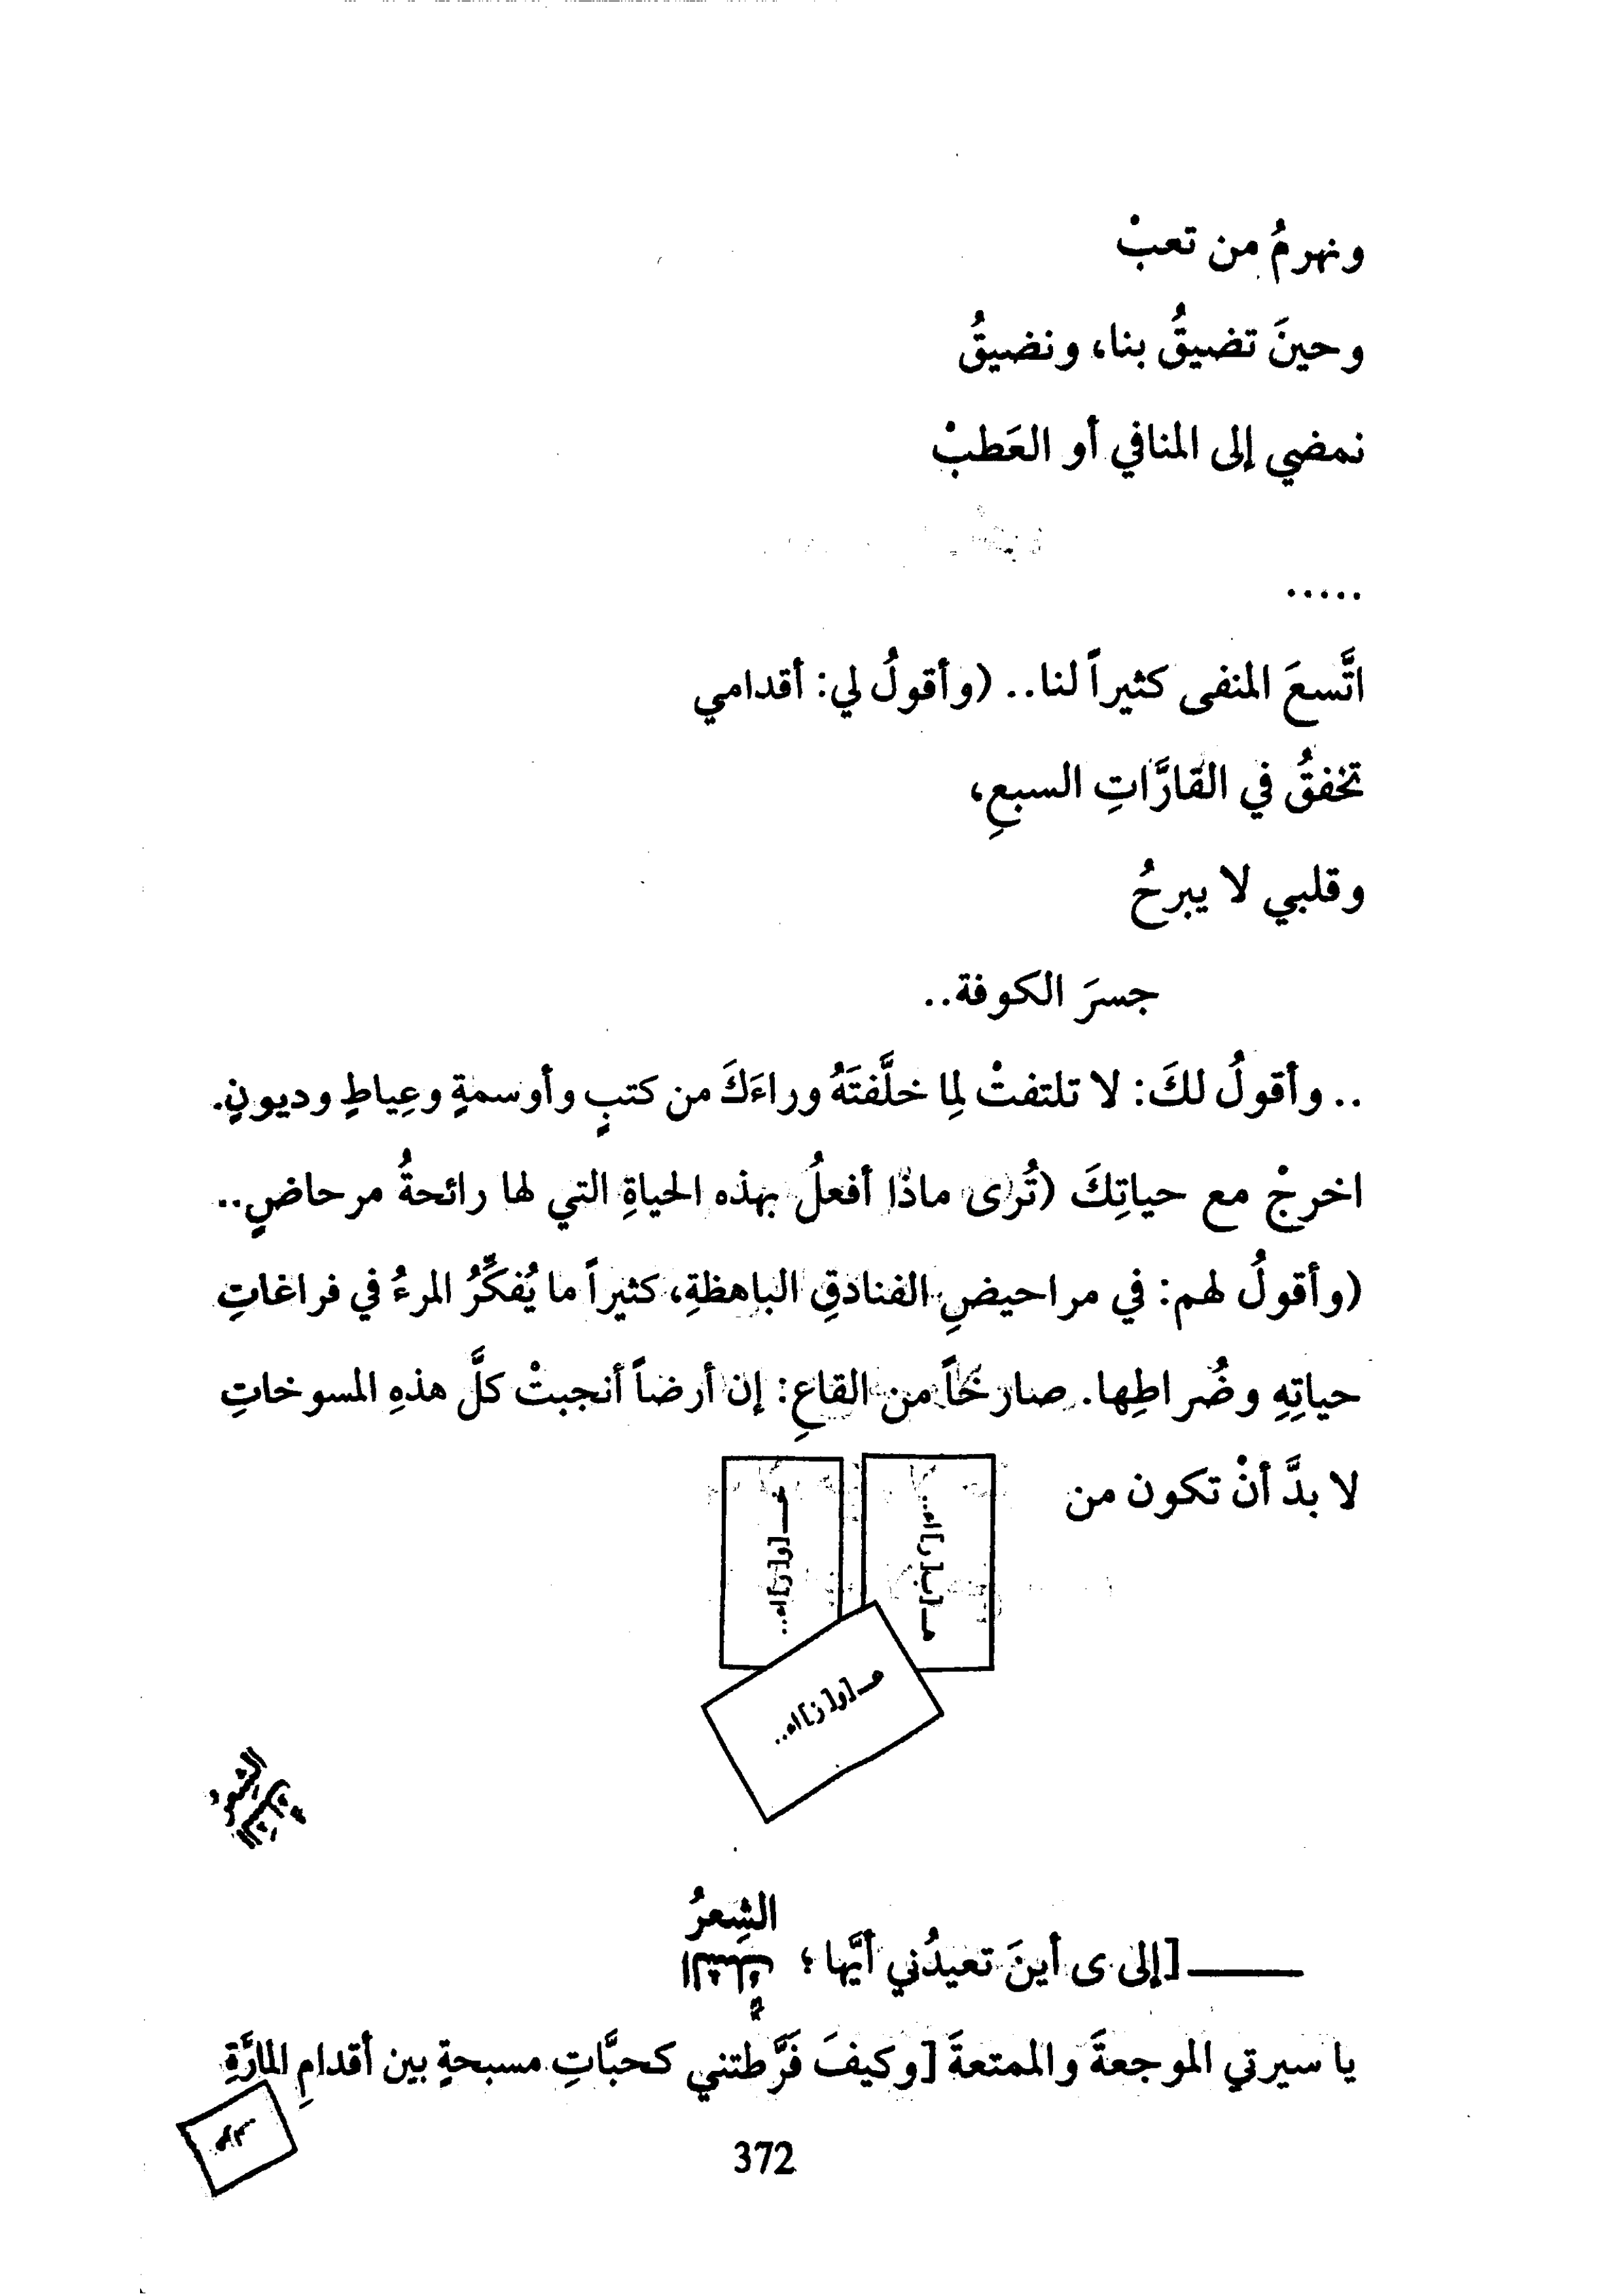 ونهرمُ من تعبْ
وحينَ تضيقُ بنا، ونضيقُ
نمضي إلى المنافي أو العَطبْ
.....
اتَّسعَ المنفى كثيراً لنا.. (وأقولُ لي: أقدامي
تخفقُ في القارَّاتِ السبعِ،
وقلبي لا يبرحُ
جسرَ الكوفة..
.. وأقولُ لكَ: لا تلتفتْ لِما خلَّفتَهُ وراءَكَ من كتبٍ وأوسمةٍ وعِياطٍ وديونٍ.
اخرجْ مع حياتِكَ (تُرى ماذا أفعلُ بهذه الحياةِ التي لها رائحةُ مرحاضٍ..
(وأقولُ لهم: في مراحيضِ الفنادقِ الباهظةِ، كثيراً ما يُفكِّرُ المرءُ في فراغاتِ
حياتِهِ وضُراطِها. صارخاً من القاعِ: إن أرضاً أنجبتْ كلَّ هذهِ المسوخاتِ
لا بدَّ أنْ تكون من
الشِعرُ
[إلى ى أينَ تعيدُني أيَّها ؛
يا سيرتي الموجعةَ والممتعةَ [وكيفَ فَرَّطتني كحبَّاتِ مسبحةٍ بين أقدامِ المارَّةِ
372